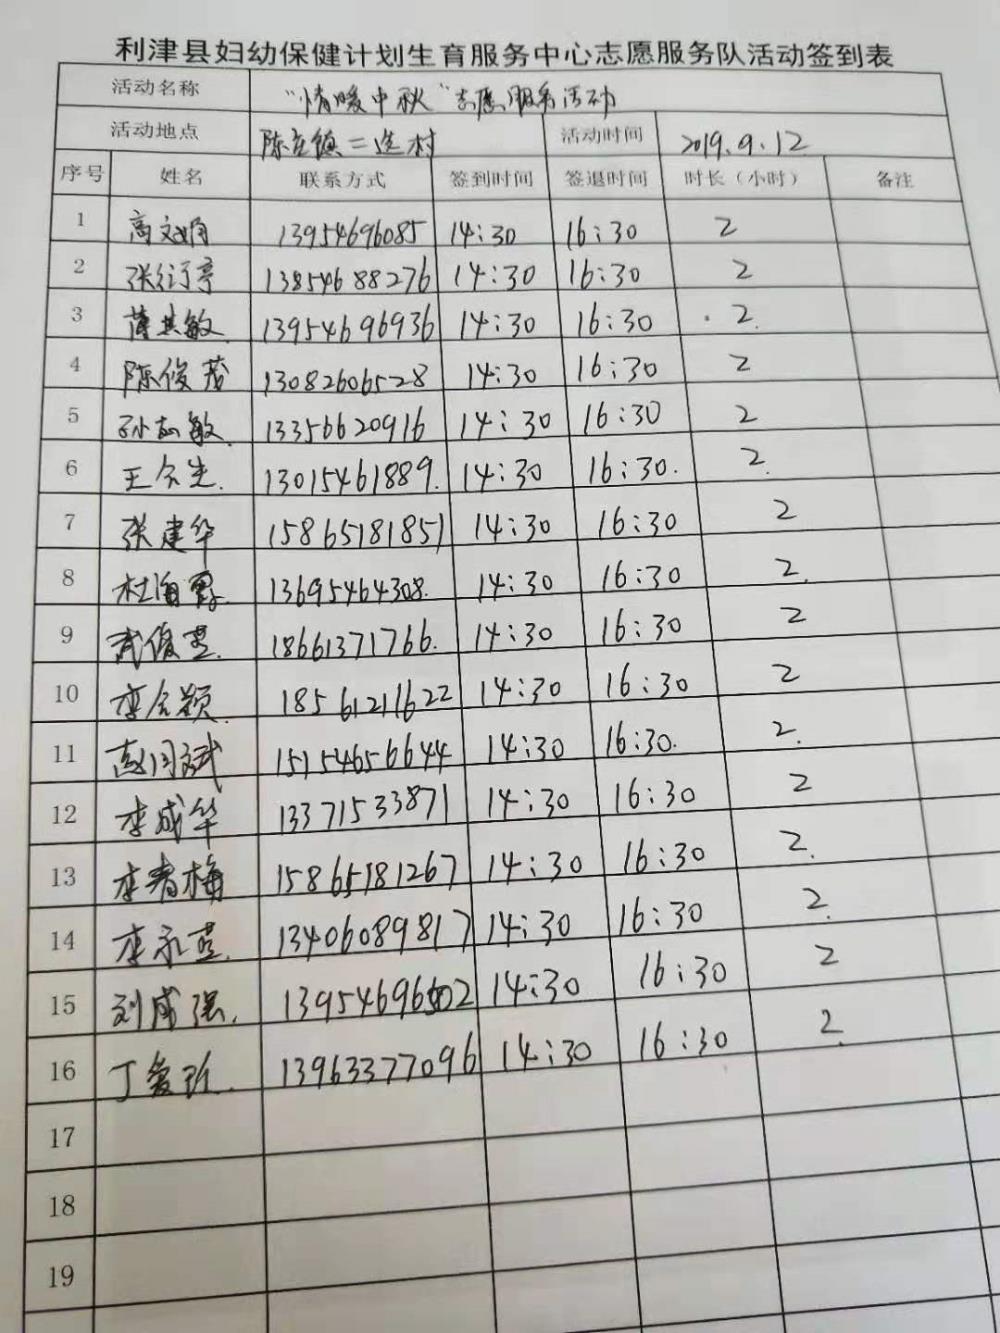 利津县妇幼保健计划生育服务中心志愿服务队活动签到表
活动名称 “情暖中秋”志愿服务活动
活动地点 陈庄镇二选村 活动时间 2019.9.12
序号 姓名 联系方式 签到时间 签退时间 时长（小时） 备注
1 高文娟 13954696085 14:30 16:30 2
2 张衍亭 13854688276 14:30 16:30 2
3 蒲其敏 13954696936 14:30 16:30 2
4 陈俊茂 13082606528 14:30 16:30 2
5 孙志敏 13356620916 14:30 16:30 2
6 王 13015461889 14:30 16:30 2
7 张建华 15865181851 14:30 16:30 2
8 杜海霞 13695464308 14:30 16:30 2
9 武俊英 18661371766 14:30 16:30 2
10 李 颖 18561211622 14:30 16:30 2
11 斌 15154656644 14:30 16:30 2
12 李成华 13371533871 14:30 16:30 2
13 李春梅 15865181267 14:30 16:30 2
14 李永英 13406089817 14:30 16:30 2
15 刘成强 13954696602 14:30 16:30 2
16 丁爱珍 13963377096 14:30 16:30 2
17
18
19